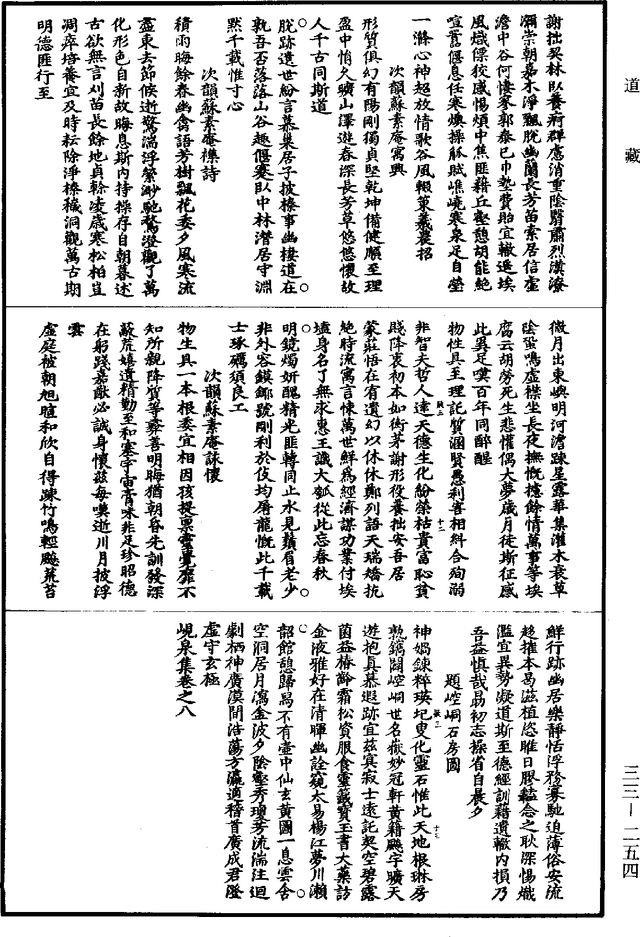 道藏
謝拙契林臥養疴群慮消重陰翳肅烈瀵潦
瀰崇朝嘉木淨飄脫幽蘭長芳苗索居信虛
澹中谷何悽寥郭泰巳巾墊費貽宜轍遥埃
風熾僄狡感惕煩中焦匪藉丘壑憩胡能絶
喧囂偃息任寒燠操觚賦嶕嶢寒泉足自瑩
一滌心神超放情歌谷風輟策羲農招
次韻蘇素庵寓興
形質俱幻有陽剛獨貞堅乾坤備健順至理
盈中悁久曠山澤遊春深長芳草悠悠懷故
人千古同斯道
脫跡遺世紛言慕巢居子披榛事幽棲道在
孰吾否落落山谷趣偃蹇臥中林潛居守淵
黙千載惟寸心
次韻蘇素庵襍詩
積雨晦餘春幽禽語芳樹飄花委夕風寒流
盡東去節候逝驚湍浮榮渺馳騖澄觀了萬
化形色自新故晦息斯内持操存自朝暮述
古欲無言刈苗長餘地貞幹凌歲寒松柏豈
凋瘁培養宜及時耘除淨榛穢洞觀萬古期
明德匪行至
微月出東嶼明河澹踈星露華集灌木衰草
陰蛩鳴虛櫺坐長夜撫慨擾餘情萬事等埃
腐云胡勞死生悲懽偶大夢歲月徒斯征感
此異足嘆百年同醉醒
物性具至理託質涵賢愚利害相糾合殉溺
非智夫哲人達天德生化紛榮枯貴富恥貧
賤降衷初本如衡茅謝形役養拙安吾居
蒙莊悟在宥遺幻以休休鄭列語天瑞矯抗
絶時流寓言悚萬世鮮爲經濟謀功業付埃
壒身名了無求惠王識大瓠從此忘春秋
明鏡燭妍醜精光匪轉同止水見鬚眉老少
非外容鏌鎁號剛利於伎均屠龍慨此千載
士琢礪須良工
次韻蘇素庵詠懷
物生具一本根委宜相因孩提稟靈覺靡不
知所親降質等彛善明晦猶朝昏先訓發深
蔽荒嬉遺精勤至和塞宇宙膏味非足珍昭德
在躬踐嘉猷必誠身懷茲每嘆逝川月披浮
雲
虛庭被朝旭暄和欣自得踈竹鳴輕飈荒苔
鮮行跡幽居樂靜恬浮務寡馳迫薄俗安流
趍摧本曷滋植恣睢日膠轕念之耿深惕熾
濫宜異勢凝道斯至德經訓藉遺轍内損乃
吾益慎哉昜初志操省自晨夕
題崆峒石房圖
神媧鍊粹瑛圯叟化靈石惟此天地根琳房
勲鐫闢崆峒世名嶽妙冠軒黃籍飈宇曠天
遊抱真慕遐跡宜茲寞寂士遠託契空碧露
菌益椿齡霜松資服食靈籤寶玉書大藥訪
金液雅好在清暉幽詮窺太易楊江夢川瀨
韶館憩歸舄不有壺中仙玄黃圖一息雲舍
空洞居月瀉金波夕陰壑秀瓊芳流湍注迴
劇栖神廣漠間浩蕩方瀛適稽首廣成君隆
虛守玄極
峴泉集卷之八
三三—二五四